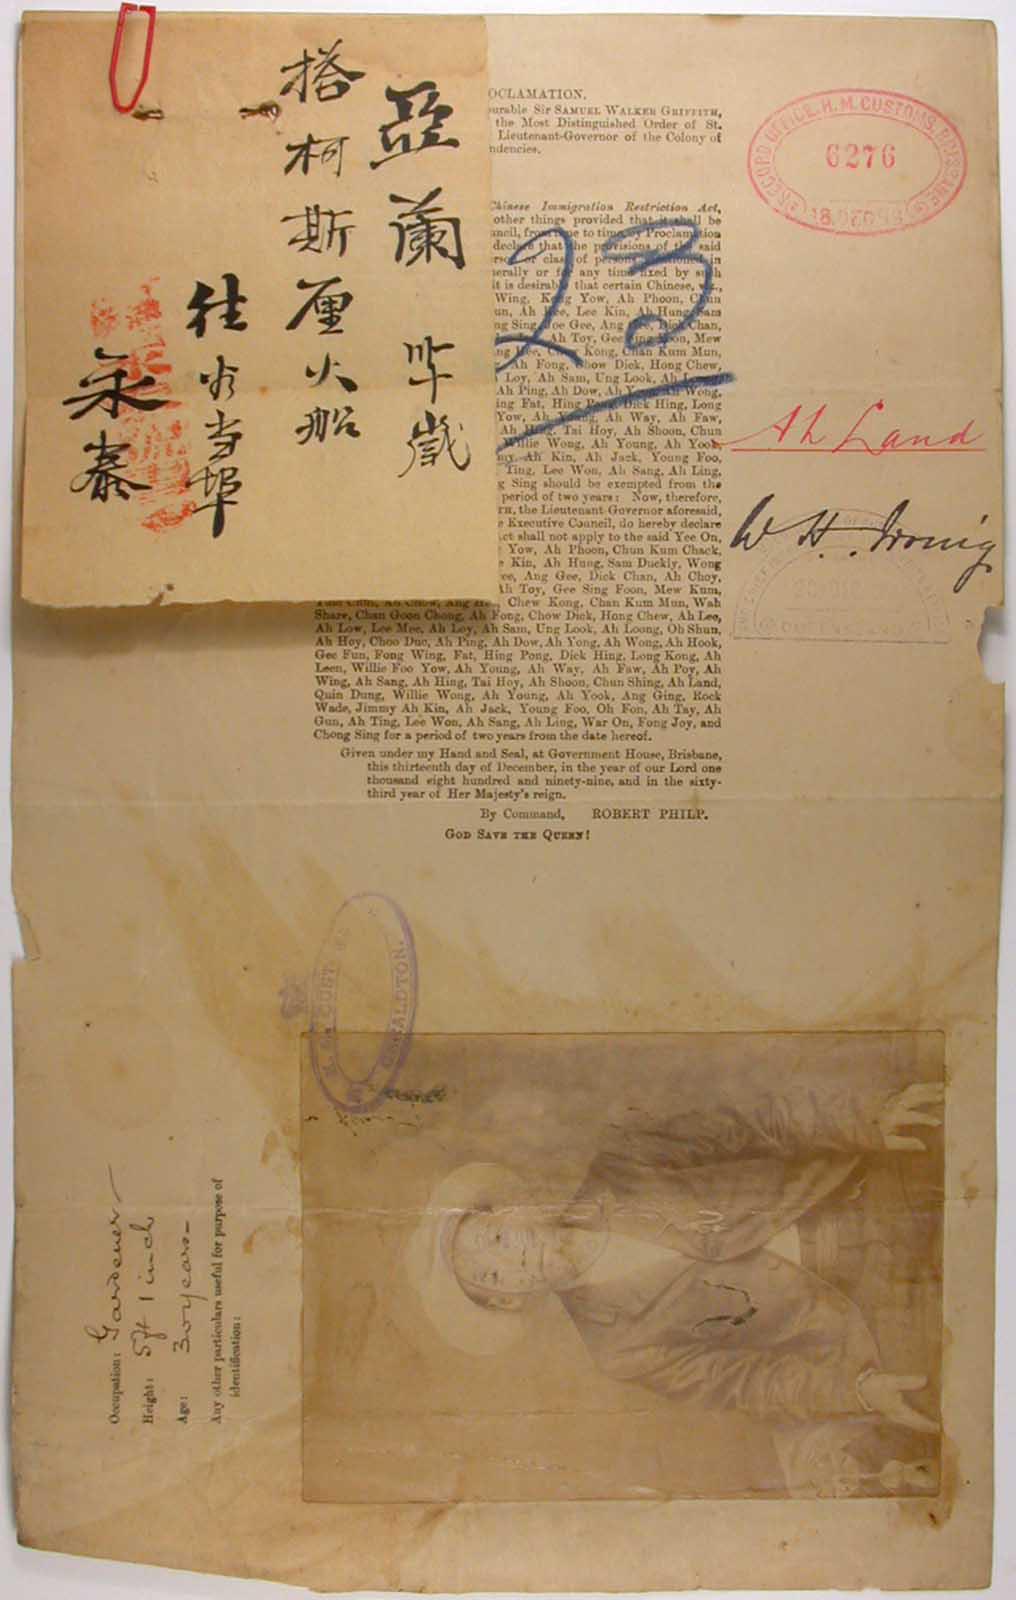 亞蘭 卅歲
搭柯斯厘火船
往谷当埠
永泰
OCLAMATION.
ourable Sir SAMUEL WALKER GRIFFITH,
the Most Distinguished Order of St.
Lieutenant-Governor of the Colony of
ndencies.
Chinese Immigration Restriction Act,
other things provided that it shall be
uncil, from time to time, by Proclamation
declare that the provisions of the said
erson or class of persons mentioned in
nerally or for any time fixed by such
it is desirable that certain Chinese, viz.,
Wing, Kong Yow, Ah Phoon, Chun
un, Ah Kee, Lee Kin, Ah Hung, Sam
ng Sing, Joe Gee, Ang Gee, Dick Chan,
Ah Toy, Gee Sing Foon, Mew
ng Hee, Chew Kong, Chan Kum Mun,
Ah Fong, Chow Dick, Hong Chew,
Loy, Ah Sam, Ung Look, Ah Loong,
Ah Ping, Ah Dow, Ah Yong, Ah Wong,
ing Fat, Hing Pong, Dick Hing, Long
Yow, Ah Young, Ah Way, Ah Faw,
Ah Hing, Tai Hoy, Ah Shoon, Chun
Willie Wong, Ah Young, Ah Yook,
my, Ah Kin, Ah Jack, Young Foo,
Ting, Lee Won, Ah Sang, Ah Ling,
g Sing should be exempted from the
period of two years: Now, therefore,
TH, the Lieutenant-Governor aforesaid,
e Executive Council, do hereby declare
Act shall not apply to the said Yee On,
Yow, Ah Phoon, Chun Kum Chack,
e Kin, Ah Hung, Sam Duckly, Wong
ee, Ang Gee, Dick Chan, Ah Choy,
Ah Toy, Gee Sing Foon, Mew Kum,
Yum Chin, Ah Chew, Ang Hee, Chew Kong, Chan Kum Mun, Wah
Share, Chan Goon Chong, Ah Fong, Chow Dick, Hong Chew, Ah Lee,
Ah Low, Lee Mee, Ah Loy, Ah Sam, Ung Look, Ah Loong, Oh Shun,
Ah Hoy, Choo Duc, Ah Ping, Ah Dow, Ah Yong, Ah Wong, Ah Hook,
Gee Fun, Fong Wing, Fat, Hing Pong, Dick Hing, Long Kong, Ah
Leen, Willie Foo Yow, Ah Young, Ah Way, Ah Faw, Ah Poy, Ah
Wing, Ah Sang, Ah Hing, Tai Hoy, Ah Shoon, Chun Shing, Ah Land,
Quin Dung, Willie Wong, Ah Young, Ah Yook, Ang Ging, Rock
Wade, Jimmy Ah Kin, Ah Jack, Young Foo, Oh Fon, Ah Tay, Ah
Gun, Ah Ting, Lee Won, Ah Sang, Ah Ling, War On, Fong Joy, and
Chong Sing for a period of two years from the date hereof.
Given under my Hand and Seal, at Government House, Brisbane,
this thirteenth day of December, in the year of our Lord one
thousand eight hundred and ninety-nine, and in the sixty-
third year of Her Majesty's reign.
By Command, ROBERT PHILP.
GOD SAVE THE QUEEN!
23
RECORD OFFICE, H.M. CUSTOMS, BRISBANE
6276
Ah Land
W. H. Irving
GERALDTON.
Occupation: Gardener
Height: 5ft 1 inch
Age: 30 years
Any other particulars useful for purpose of
identification: